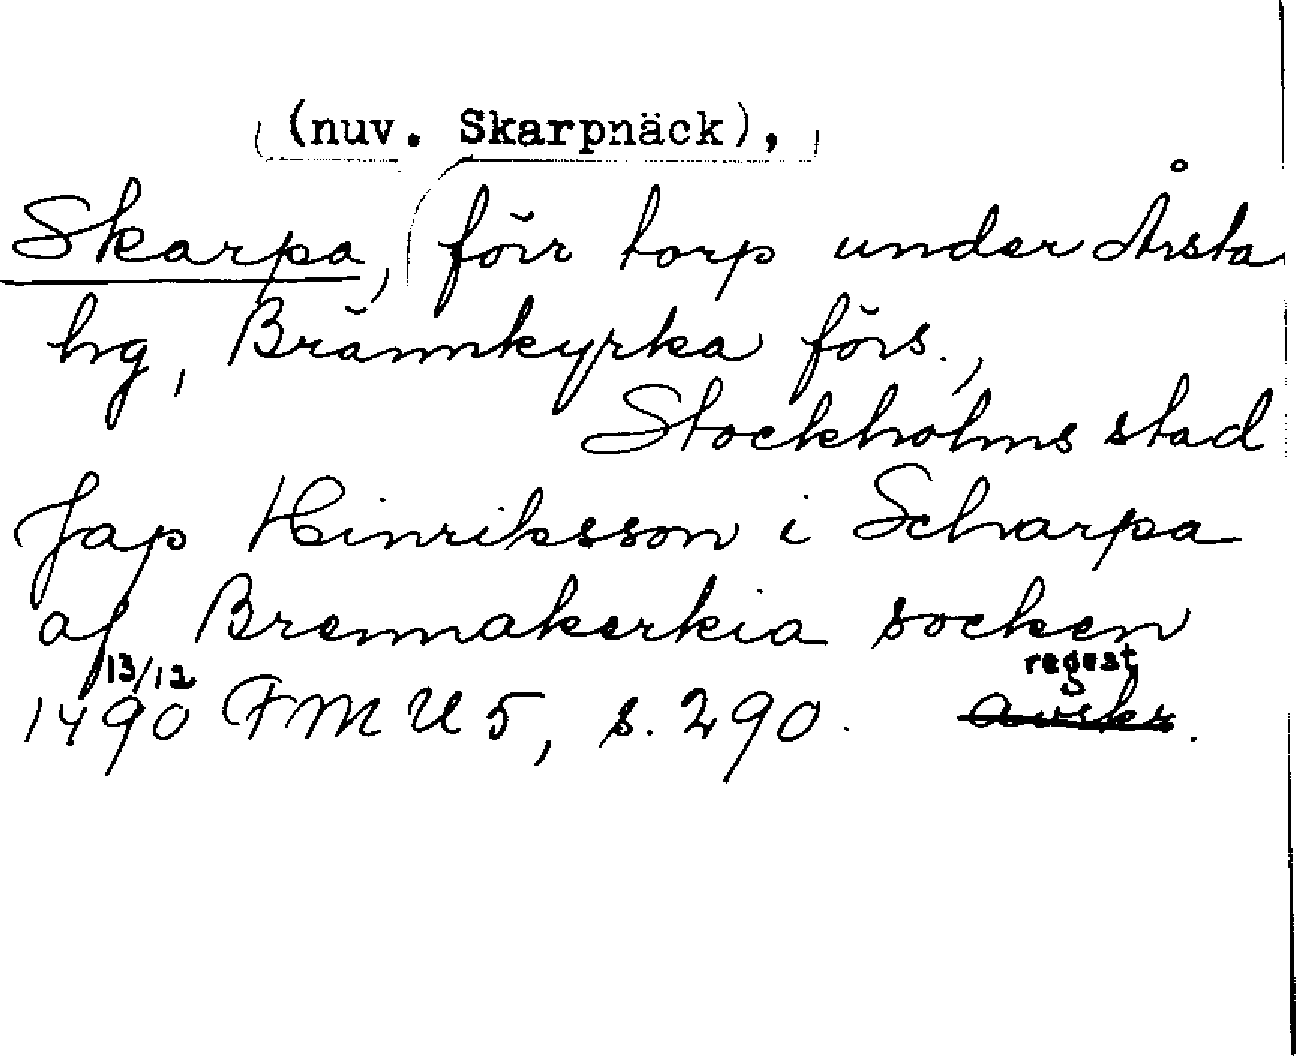 (nuv. Skarpnäck),
Skarpa, förr torp under Årsta
hg, Brännkyrka förs.,
Stockholms stad
Jap Hinriksson i Scharpa
af Brennakerkia socken
13/12 regest
1490 FMU 5, s. 290. avskr.